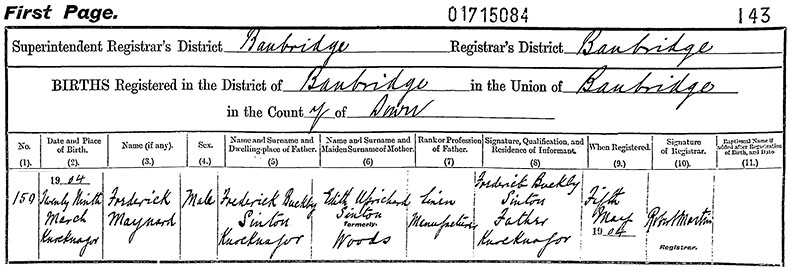 First Page. 01715084 143
Superintendent Registrar's District Banbridge Registrar's District Banbridge
BIRTHS Registered in the District of Banbridge in the Union of Banbridge
in the County of Down
No. (1). Date and Place of Birth. (2). Name (if any). (3). Sex. (4.) Name and Surname and Dwelling-place of Father. (5) Name and Surname and Maiden Surname of Mother. (6) Rank or Profession of Father. (7) Signature, Qualification, and Residence of Informant. (8) When Registered. (9.) Signature of Registrar. (10.) Baptismal Name if added after Registration of Birth, and Date. (11.)
150 1904 Twenty Ninth March Knocknagor Frederick Maynard Male Frederick Buckby Sinton Knocknagor Edith Uprichard Sinton formerly Woods Linen Manufacturer Frederick Buckby Sinton Father Knocknagor Fifth May 1904 Robert Martin Registrar.